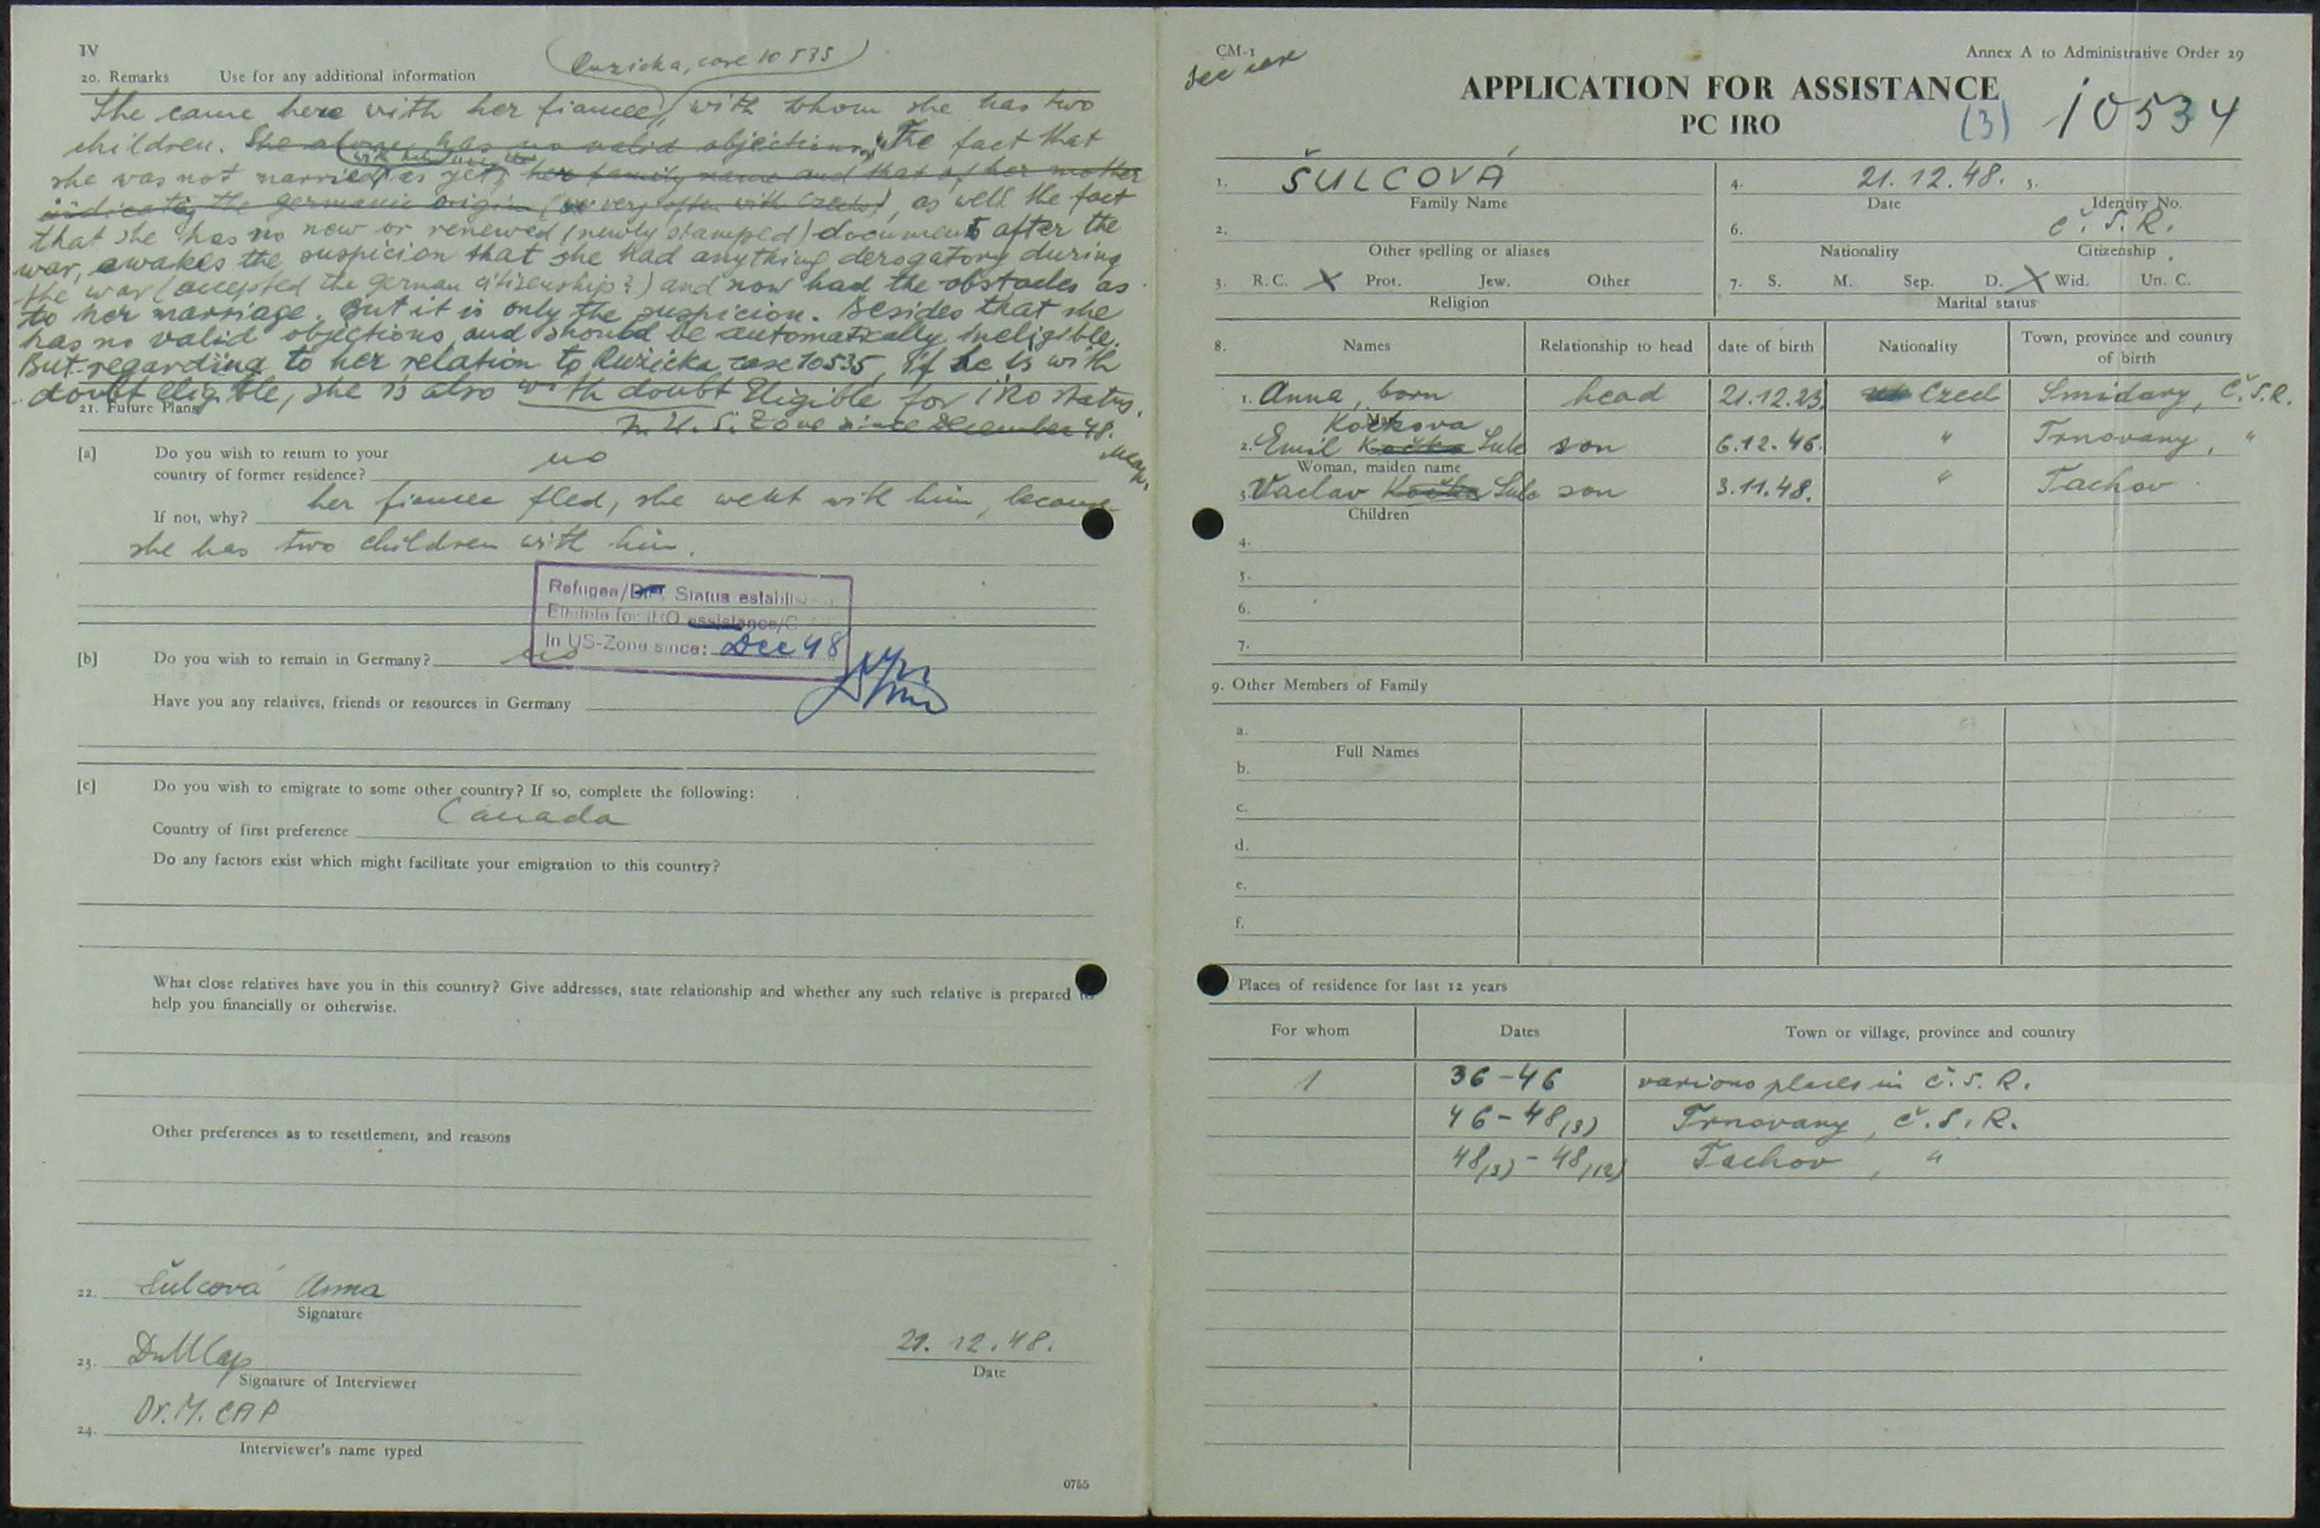 IV
20. Remarks Use for any additional information
(Ruzicka, case 10535)
She came here with her fiancee, with whom she has two
children. She alone has no valid objections. The fact that
she was not married as yet, her family name and that of her mother
indicating the germanic origin (very often with Czechs), as well the fact
that she has no new or renewed (newly stamped) documents after the
war, awakes the suspicion that she had anything derogatory during
the war (accepted the german citizenship?) and now had the obstacles as
to her marriage. But it is only the suspicion. Besides that she
has no valid objections and should be automatically ineligible.
But regarding to her relation to Ruzicka case 10535, if he is with
doubt eligible, she is also with doubt Eligible for IRO status.
21. Future Plans
In U.S. Zone since December 48.
[a] Do you wish to return to your
country of former residence? no
If not, why? her fiancee fled, she went with him, because
she has two children with him.
Refugee/ Status establi
Eligible for IRO assistance/
In US-Zone since: Dec 48
[b] Do you wish to remain in Germany? no
Have you any relatives, friends or resources in Germany
[c] Do you wish to emigrate to some other country? If so, complete the following:
Country of first preference Canada
Do any factors exist which might facilitate your emigration to this country?
What close relatives have you in this country? Give addresses, state relationship and whether any such relative is prepared to
help you financially or otherwise.
Other preferences as to resettlement, and reasons
22. Šulcová Anna
Signature
23.
Signature of Interviewer
21. 12. 48.
Date
Dr. M. CAP
24.
Interviewer's name typed
0755
CM-1
See case
Annex A to Administrative Order 29
APPLICATION FOR ASSISTANCE
PC IRO
(3) 10534
1. ŠULCOVÁ
Family Name
4. 21. 12. 48. 5.
Date Identity No.
2.
Other spelling or aliases
6. Č. S. R.
Nationality Citizenship
3. R.C. X Prot. Jew. Other
Religion
7. S. M. Sep. D. X Wid. Un. C.
Marital status
8. Names Relationship to head date of birth Nationality Town, province and country
of birth
1. Anna, born head 21.12.23. Czech Smidary, Č.S.R.
Kočkova
2. Emil Kočka Sulc son 6.12.46. " Trnovany, "
Woman, maiden name
3. Vaclav Kočka Sulc son 3.11.48. " Tachov
Children
4.
5.
6.
7.
9. Other Members of Family
a.
Full Names
b.
c.
d.
e.
f.
Places of residence for last 12 years
For whom Dates Town or village, province and country
1 36-46 various places in Č.S.R.
46-48(3) Trnovany, Č.S.R.
48(3)-48(12) Tachov, "